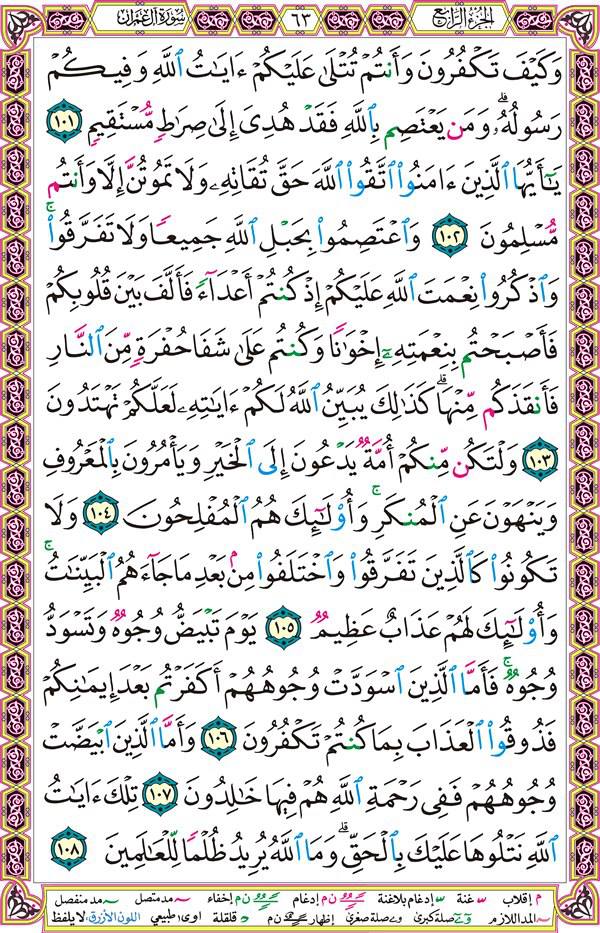 الجزء الرابع
٦٣
سورة آل عمران
وَكَيْفَ تَكْفُرُونَ وَأَنتُمْ تُتْلَىٰ عَلَيْكُمْ ءَايَـٰتُ ٱللَّهِ وَفِيكُمْ
رَسُولُهُۥ ۗ وَمَن يَعْتَصِم بِٱللَّهِ فَقَدْ هُدِىَ إِلَىٰ صِرَٰطٍ مُّسْتَقِيمٍ ١٠١
يَـٰٓأَيُّهَا ٱلَّذِينَ ءَامَنُوا۟ ٱتَّقُوا۟ ٱللَّهَ حَقَّ تُقَاتِهِۦ وَلَا تَمُوتُنَّ إِلَّا وَأَنتُم
مُّسْلِمُونَ ١٠٢ وَٱعْتَصِمُوا۟ بِحَبْلِ ٱللَّهِ جَمِيعًا وَلَا تَفَرَّقُوا۟ ۚ
وَٱذْكُرُوا۟ نِعْمَتَ ٱللَّهِ عَلَيْكُمْ إِذْ كُنتُمْ أَعْدَآءً فَأَلَّفَ بَيْنَ قُلُوبِكُمْ
فَأَصْبَحْتُم بِنِعْمَتِهِۦٓ إِخْوَٰنًا وَكُنتُمْ عَلَىٰ شَفَا حُفْرَةٍ مِّنَ ٱلنَّارِ
فَأَنقَذَكُم مِّنْهَا ۗ كَذَٰلِكَ يُبَيِّنُ ٱللَّهُ لَكُمْ ءَايَـٰتِهِۦ لَعَلَّكُمْ تَهْتَدُونَ
١٠٣ وَلْتَكُن مِّنكُمْ أُمَّةٌ يَدْعُونَ إِلَى ٱلْخَيْرِ وَيَأْمُرُونَ بِٱلْمَعْرُوفِ
وَيَنْهَوْنَ عَنِ ٱلْمُنكَرِ ۚ وَأُو۟لَـٰٓئِكَ هُمُ ٱلْمُفْلِحُونَ ١٠٤ وَلَا
تَكُونُوا۟ كَٱلَّذِينَ تَفَرَّقُوا۟ وَٱخْتَلَفُوا۟ مِنۢ بَعْدِ مَا جَآءَهُمُ ٱلْبَيِّنَـٰتُ ۚ
وَأُو۟لَـٰٓئِكَ لَهُمْ عَذَابٌ عَظِيمٌ ١٠٥ يَوْمَ تَبْيَضُّ وُجُوهٌ وَتَسْوَدُّ
وُجُوهٌ ۚ فَأَمَّا ٱلَّذِينَ ٱسْوَدَّتْ وُجُوهُهُمْ أَكَفَرْتُم بَعْدَ إِيمَـٰنِكُمْ
فَذُوقُوا۟ ٱلْعَذَابَ بِمَا كُنتُمْ تَكْفُرُونَ ١٠٦ وَأَمَّا ٱلَّذِينَ ٱبْيَضَّتْ
وُجُوهُهُمْ فَفِى رَحْمَةِ ٱللَّهِ هُمْ فِيهَا خَـٰلِدُونَ ١٠٧ تِلْكَ ءَايَـٰتُ
ٱللَّهِ نَتْلُوهَا عَلَيْكَ بِٱلْحَقِّ ۗ وَمَا ٱللَّهُ يُرِيدُ ظُلْمًا لِّلْعَـٰلَمِينَ ١٠٨
م إقلاب س غنة س إدغام بلاغنة ن م إدغام ن م إخفاء ~ مد متصل ~ مد منفصل
~ المد اللازم و ے صلة كبرى و ے صلة صغرى إظهار ن م اوى طبيعي قلقلة اللون الأزرق لا يلفظ